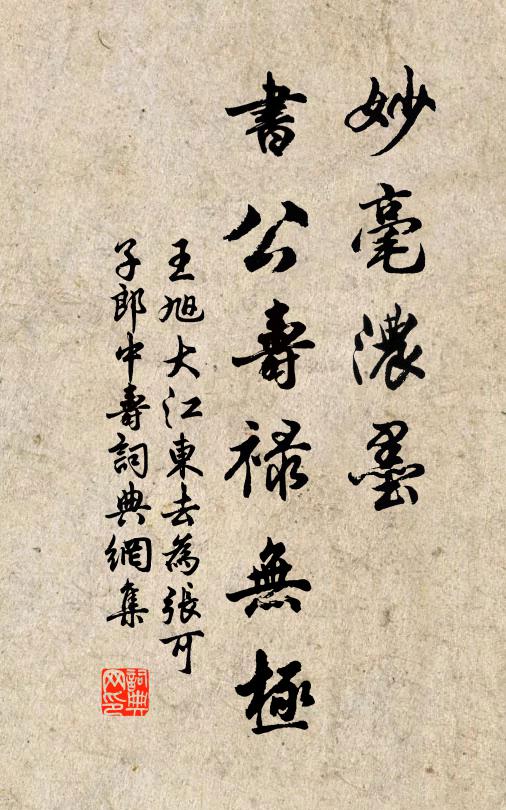 妙毫濃墨
書公壽祿無極
王旭大江東去為張可
子郎中壽詞典網集
詞典网印